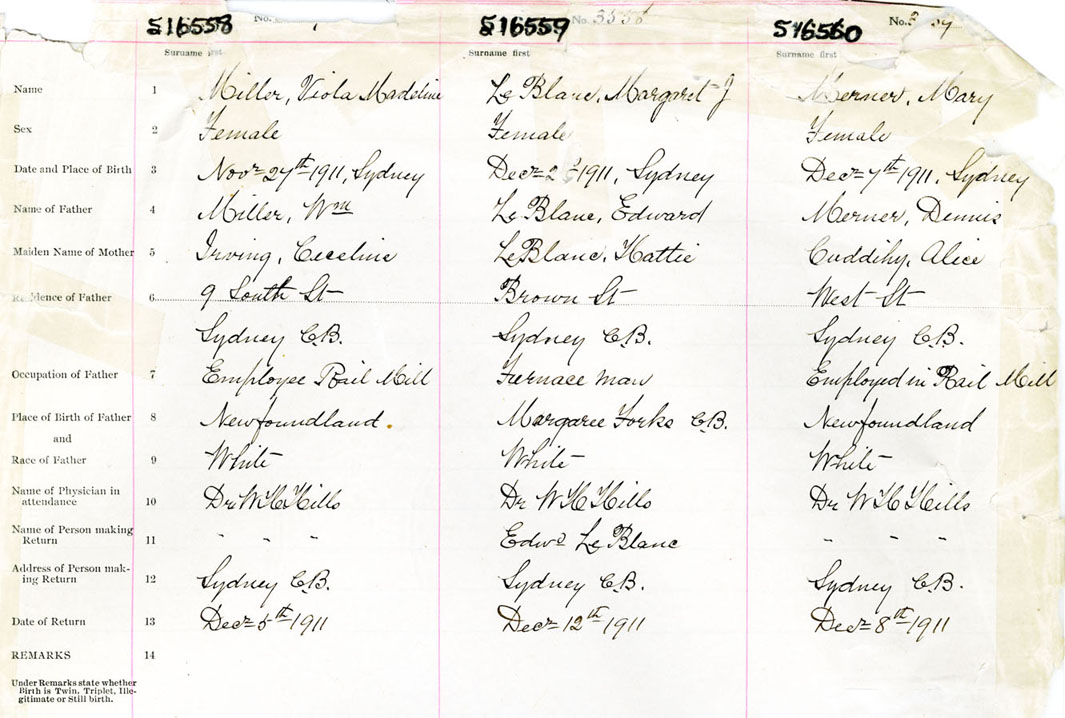 S16558 No. S16559 No. 3558 S16560 No.
Surname first Surname first Surname first
Name 1 Miller, Viola Madeline Le Blanc, Margaret J Merner, Mary
Sex 2 Female Female Female
Date and Place of Birth 3 Novr 27th 1911, Sydney Decr 2 1911, Sydney Decr 7th 1911, Sydney
Name of Father 4 Miller, Wm Le Blanc, Edward Merner, Dennis
Maiden Name of Mother 5 Irving, Ceceline LeBlanc, Hattie Cuddihy, Alice
Residence of Father 6 9 South St Brown St West St
Sydney C.B. Sydney C.B. Sydney C.B.
Occupation of Father 7 Employee Rail Mill Furnace man Employed in Rail Mill
Place of Birth of Father 8 Newfoundland. Margaree Forks C.B. Newfoundland
and
Race of Father 9 White White White
Name of Physician in
attendance 10 Dr W H Hills Dr W H Hills Dr W H Hills
Name of Person making
Return 11 " " " Edwd Le Blanc " " "
Address of Person mak-
ing Return 12 Sydney C.B. Sydney C.B. Sydney C.B.
Date of Return 13 Decr 5th 1911 Decr 12th 1911 Decr 8th 1911
REMARKS 14
Under Remarks state whether
Birth is Twin, Triplet, Ille-
gitimate or Still birth.